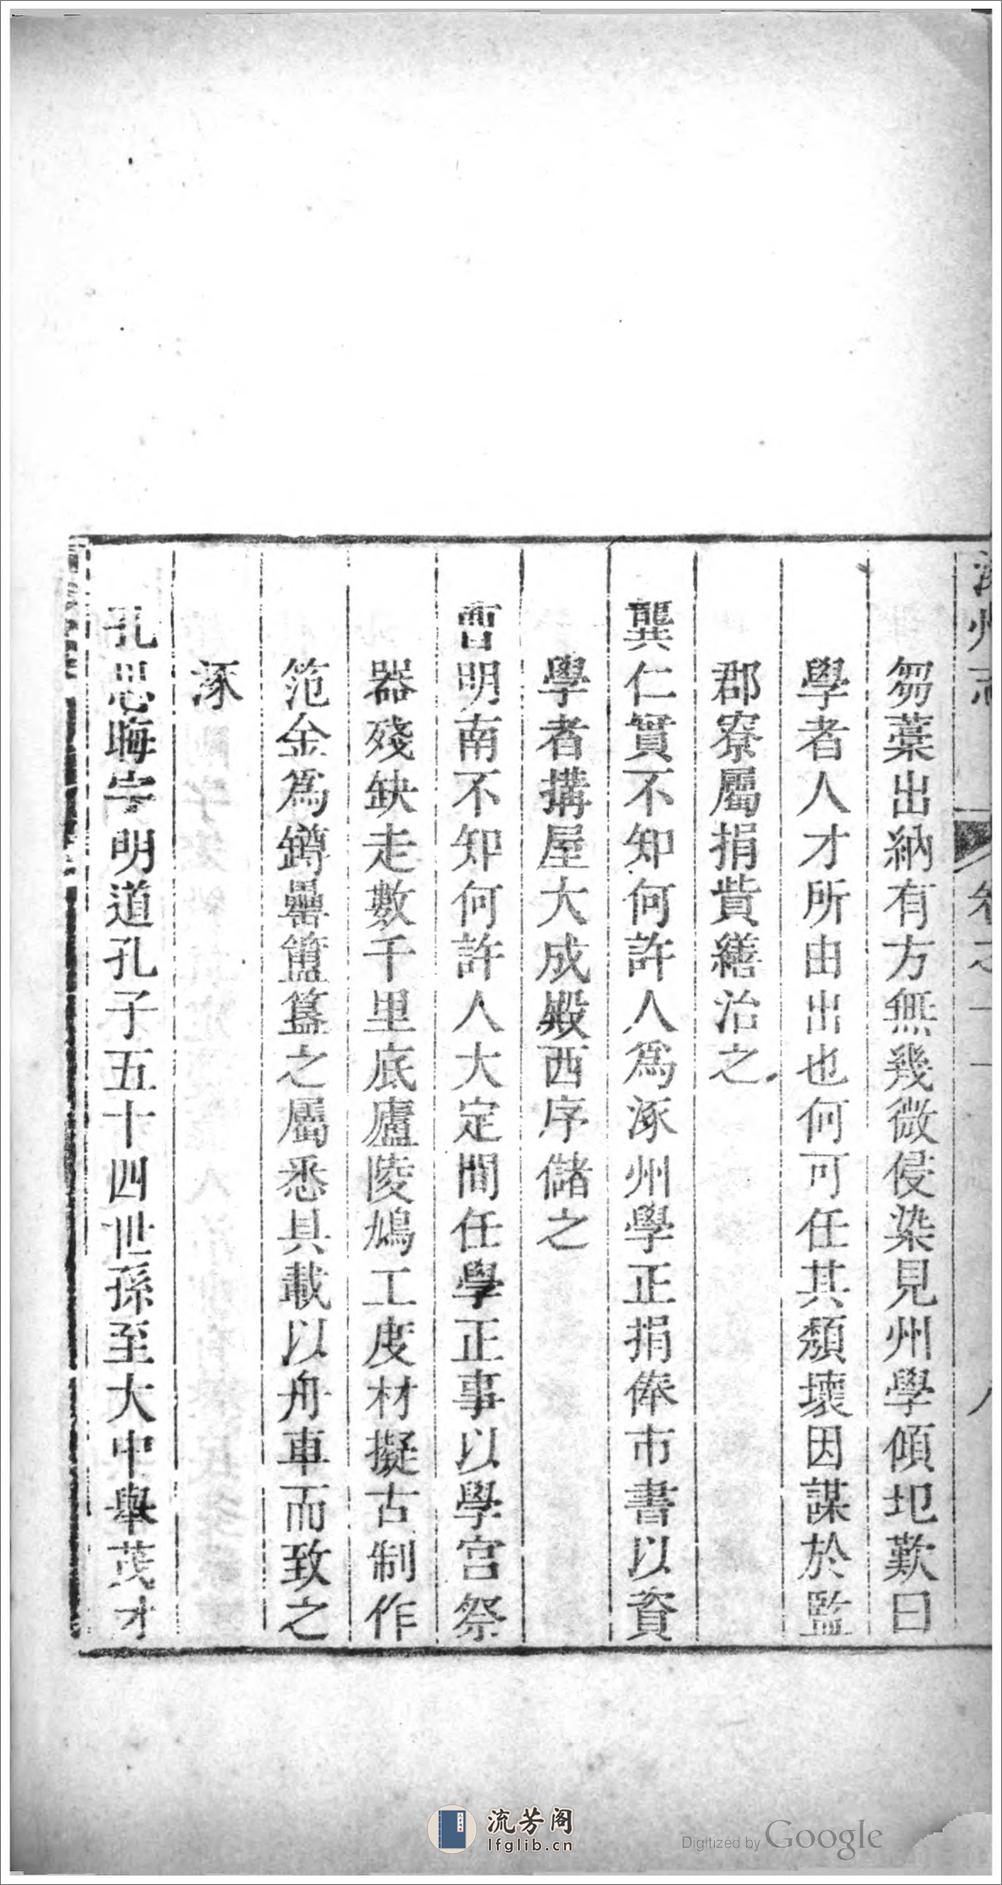 州志 卷之十一 八
芻藁出納有方無幾微侵染見州學傾圯歎曰
學者人才所由出也何可任其頹壞因謀於監
郡寮屬捐貲繕治之
龔仁實不知何許人爲涿州學正捐俸市書以資
學者搆屋大成殿西序儲之
明南不知何許人大定間任學正事以學宮祭
器殘缺走數千里底廬陵鳩工度材擬古制作
范金爲罇罍簠簋之屬悉具載以舟車而致之
涿
孔思晦字明道孔子五十四世孫至大中舉茂才
流芳阁
lfglib.cn
Digitized by Google